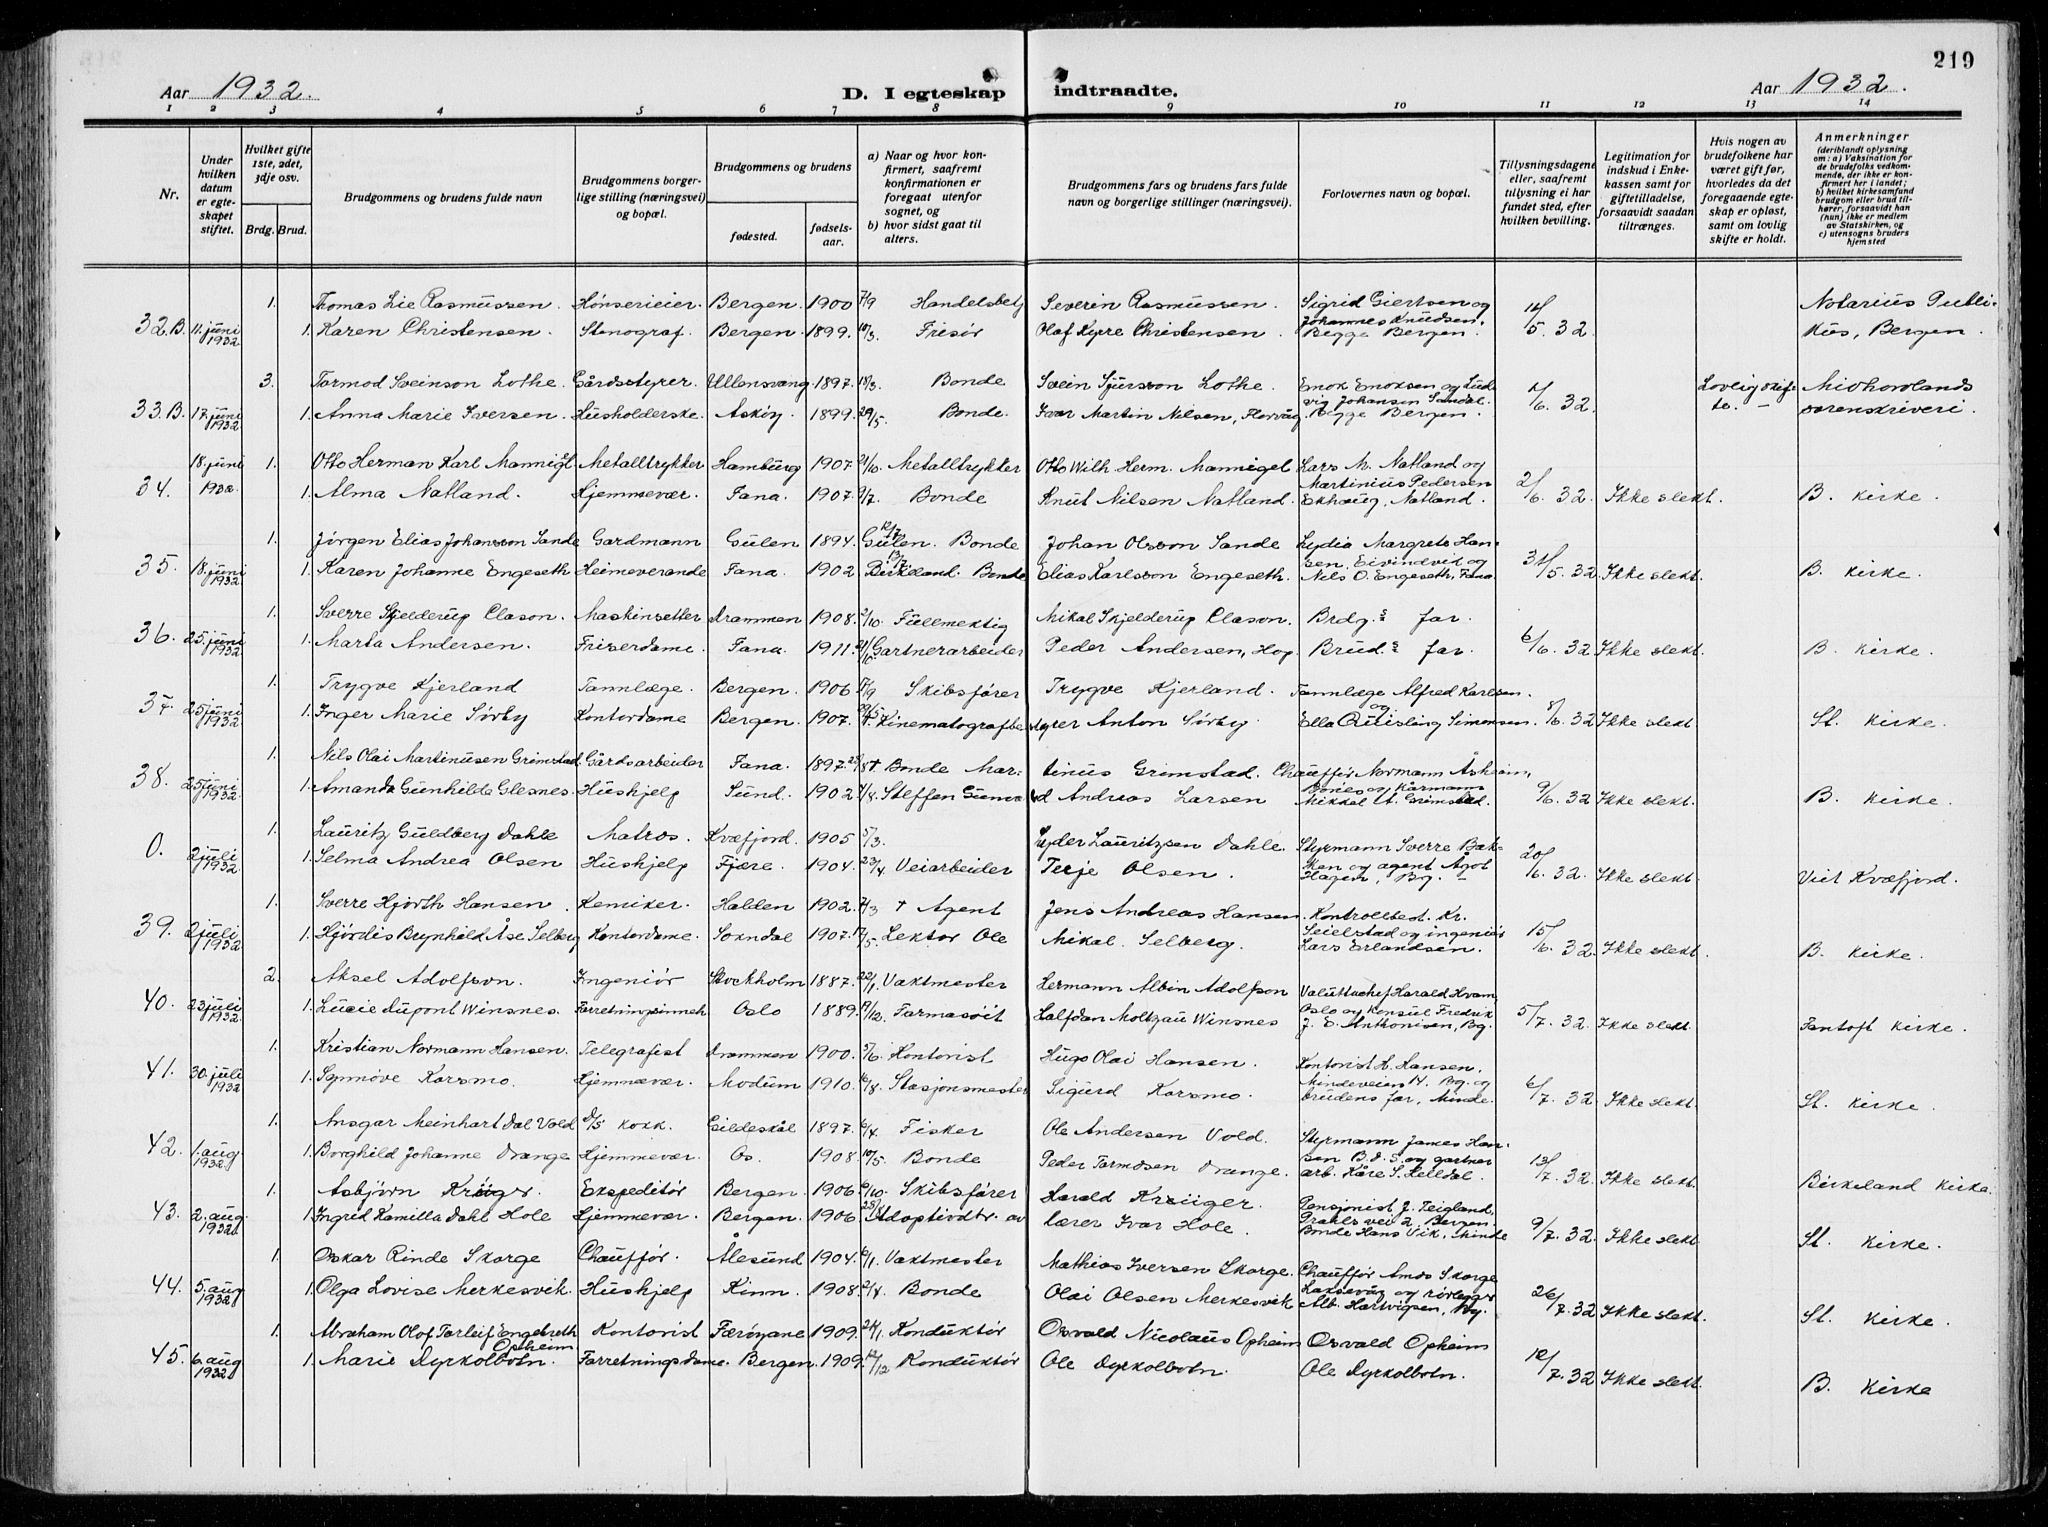 219
Aar 1932.
D. I egteskap indtraadte.
Aar 1932.
1 2 3 4 5 6 7 8 9 10 11 12 13 14
Nr.
Under hvilken datum er egteskapet stiftet.
Hvilket gifte 1ste, 2det, 3dje osv.
Brdg. Brud.
Brudgommens og brudens fulde navn
Brudgommens borgerlige stilling (næringsvei) og bopæl.
Brudgommens og brudens
fødested.
fødselsaar.
a) Naar og hvor konfirmert, saafremt konfirmationen er foregaat utenfor sognet, og
b) hvor sidst gaat til alters.
Brudgommens fars og brudens fars fulde navn og borgerlige stillinger (næringsvei).
Forlovernes navn og bopæl.
Tillysningsdagene eller, saafremt tillysning ei har fundet sted, efter hvilken bevilling.
Legitimation for indskud i Enkekassen samt for giftetilladelse, forsaavidt saadan tiltrænges.
Hvis nogen av brudefolkene har været gift før, hvorledes da det foregaaende egteskap er opløst, samt om lovlig skifte er holdt.
Anmerkninger (deriblandt oplysning om: a) Vaksination for de brudefolks vedkommende, der ikke er konfirmert her i landet; b) hvilket kirkesamfund brudgom eller brud tilhører, forsaavidt han (hun) ikke er medlem av Statskirken, og c) utensogns bruders hjemsted
1. Thomas Lie Rasmussen. Hønserieier. Bergen. 1900 7/9 Handelsbetj Severin Rasmussen. Sigrid Giertsen og Notarius Publi-
32.B. 11. juni 1932 1. Karen Christensen. Stenograf. Bergen. 1899. 10/3. Frisør Olaf Kyrre Christensen. Johannes Knudsen. Begge Bergen. 14/5. 32. kus, Bergen.
3. Tormod Sveinson Lothe. Gårdsstyrer. Ullensvang. 1897. 18/3. Bonde Svein Sjursson Lothe. Enok Enoksen og Lud- Lovlig skif- Midhordlands
33.B. 17. juni 1932. 1. Anna Marie Iversen. Husholderske. Askøy. 1899. 29/5. Bonde. Ivar Martin Nilsen, Florvåg. vig Johansen Sandal. Begge Bergen. 1/6. 32. te. – sorenskriveri.
18. juni 1. Otto Herman Karl Mannigel. Metalltrykker Hamburg 1907. 21/10. Metalltrykker Otto Wilh. Herm. Mannigel Lars M. Natland og
34. 1932. 1. Alma Natland. Hjemmevær. Fana. 1907. 9/7. Bonde Knut Nilsen Natland. Martinius Pedersen Ekhaug, Natland. 2/6. 32. Ikke slekt. B. kirke.
1. Jørgen Elias Johansson Sande Gardmann Gulen 1894. 12/7 Gulen. Bonde Johan Olsson Sande Lydia Margrete Han-
35. 18. juni 1932 1. Karen Johanne Engeseth. Heimeverande Fana. 1902 13/7 Birkeland. Bonde Elias Karlsson Engeseth. sen, Eivindvid og Nils O. Engeseth, Fana. 31/5. 32 Ikke slekt. B. kirke.
1. Sverre Skjelderup Clason. Maskinsetter Drammen 1908. 2/10. Fullmektig Mikal Skjelderup Clason. Brdg.s far.
36. 25. juni 1932 1. Marta Andersen. Friserdame. Fana. 1911. 21/10 Gartnerarbeider Peder Andersen, Hop. Brud.s far. 6/6. 32 Ikke slekt. B. kirke.
1. Trygve Kjerland Tannlæge. Bergen. 1906 17/9 Skibsfører Trygve Kjerland. Tannlæge Alfred Karlsen.
37. 25 juni 1932 1. Inger Marie Sörby Kontordame Bergen. 1907. 29/5 † Kinematografbestyrer Anton Sörby. og Ella Quisling Simonsen. 8/6. 32 Ikke slekt. St. kirke.
1. Nils Olai Martinusen Grimstad Gårdsarbeider Fana. 1897. 25/8 † Bonde Mar- tinus Grimstad. Chauffør Normann Åsheim,
38. 25 juni 1932. 1. Amanda Gunhilda Glesnes. Hushjelp Sund. 1902 1/8. Steffen Andreas Larsen Bønes og Mikkal A. Grimstad. 9/6. 32 Ikke slekt. B. kirke.
1. Lauritz Guldberg Dahle Matros. Kvæfjord. 1905 5/3. Peder Lauritzsen Dahle. Styrmann Sverre Bak-
0. 2 juli 1932 1. Selma Andrea Olsen Hushjelp Fjære. 1904. 23/4 Veiarbeider Terje Olsen. ken og agent Ågot Hagen, Bg. – 20/6. 32. Ikke slekt Viet Kvæfjord.
1. Sverre Hjorth Hansen. Kemiker. Halden 1902. 7/3 † Agent Jens Andreas Hansen. Kontrollbest. Kr.
39. 2 juli 1932 1. Hjördis Brynhild Åse Selberg Kontordame. Sokndal 1907. 17/5. Lektor Ole Mikal. Selberg. Seielstad og ingeniør Lars Erlandsen. 15/6. 32 Ikke slekt. B. kirke.
2. Aksel Adolfson. Ingeniør Stockholm 1887. 22/1. Vaktmester Hermann Albin Adolfson Valuttachef Harald Hvam,
40. 23 juli 1932. 1. Lucie Dupont Winsnes. Forretningsinneh Oslo 1889. 17/12. Farmasöit Halfdan Moltzau Winsnes Oslo og konsul Fredrik J. E. Anthonisen, Bg. 5/7. 32. Ikke slekt Fantoft kirke.
1. Kristian Normann Hansen. Telegrafist Drammen 1900. 5/6. Kontorist Hugo Olai Hansen. Kontorist H. Hansen,
41. 30. juli 1932 1. Synnøve Korsmo. Hjemmevær. Modum 1910. 16/8. Stasjonsmester Sigurd Korsmo. Mindeveien 14. Bg. og brudens far, Minde. 6/7. 32. Ikke slekt. St. kirke.
1. Ansgar Meinhart Dal Vold D/S kokk. Gildeskål 1897. 6/4. Fisker Ole Andersen Vold. Styrmann James Han-
42. 1. aug 1932. 1. Borghild Johanne Drange Hjemmevær. Os. 1908. 10/5. Bonde Peder Tormodsen Drange. sen B. D. S. og gartner arb. Kåre S. Helldal. 13/7. 32. Ikke slekt Birkeland kirke.
1. Asbjørn Krüger. Ekspeditör Bergen. 1906. 6/10. Skibsfører Harald Krüger. Pensjonist J. Teigland,
43. 2. aug 1932. 1. Ingrid Kamilla Dahl Hole Hjemmevær. Bergen. 1906. Adoptivdtr. av lærer Ivar Hole. Krahls vei 2, Bergen. Bonde Hans Vik, Minde 9/7. 32. Ikke slekt St. kirke.
1. Oskar Rinde Skorge Chauffør. Ålesund 1904. 6/1. Vaktmester Mathias Iversen Skorge. Chauffør Amds Skorge
44. 5. aug 1932. 1. Olga Lovise Merkesvik. Hushjelp Kinn. 1908. 2/4. Bonde Olai Olsen Merkesvik Laksevåg og rørlegger Alb. Hartvigsen, Bg. 26/7. 32 Ikke slekt. St. kirke.
1. Abraham Olof Torleif Engebreth Opheim Kontorist Færöyane 1909. 24/1. Konduktør Osvald Nicolaus Opheim Osvald Opheim
45. 6. aug 1932. 1. Marie Dyrkolbotn. Forretningsdame. Bergen. 1909. 12/12 Konduktør Ole Dyrkolbotn. Ole Dyrkolbotn. 12/7. 32 Ikke slekt. B. kirke